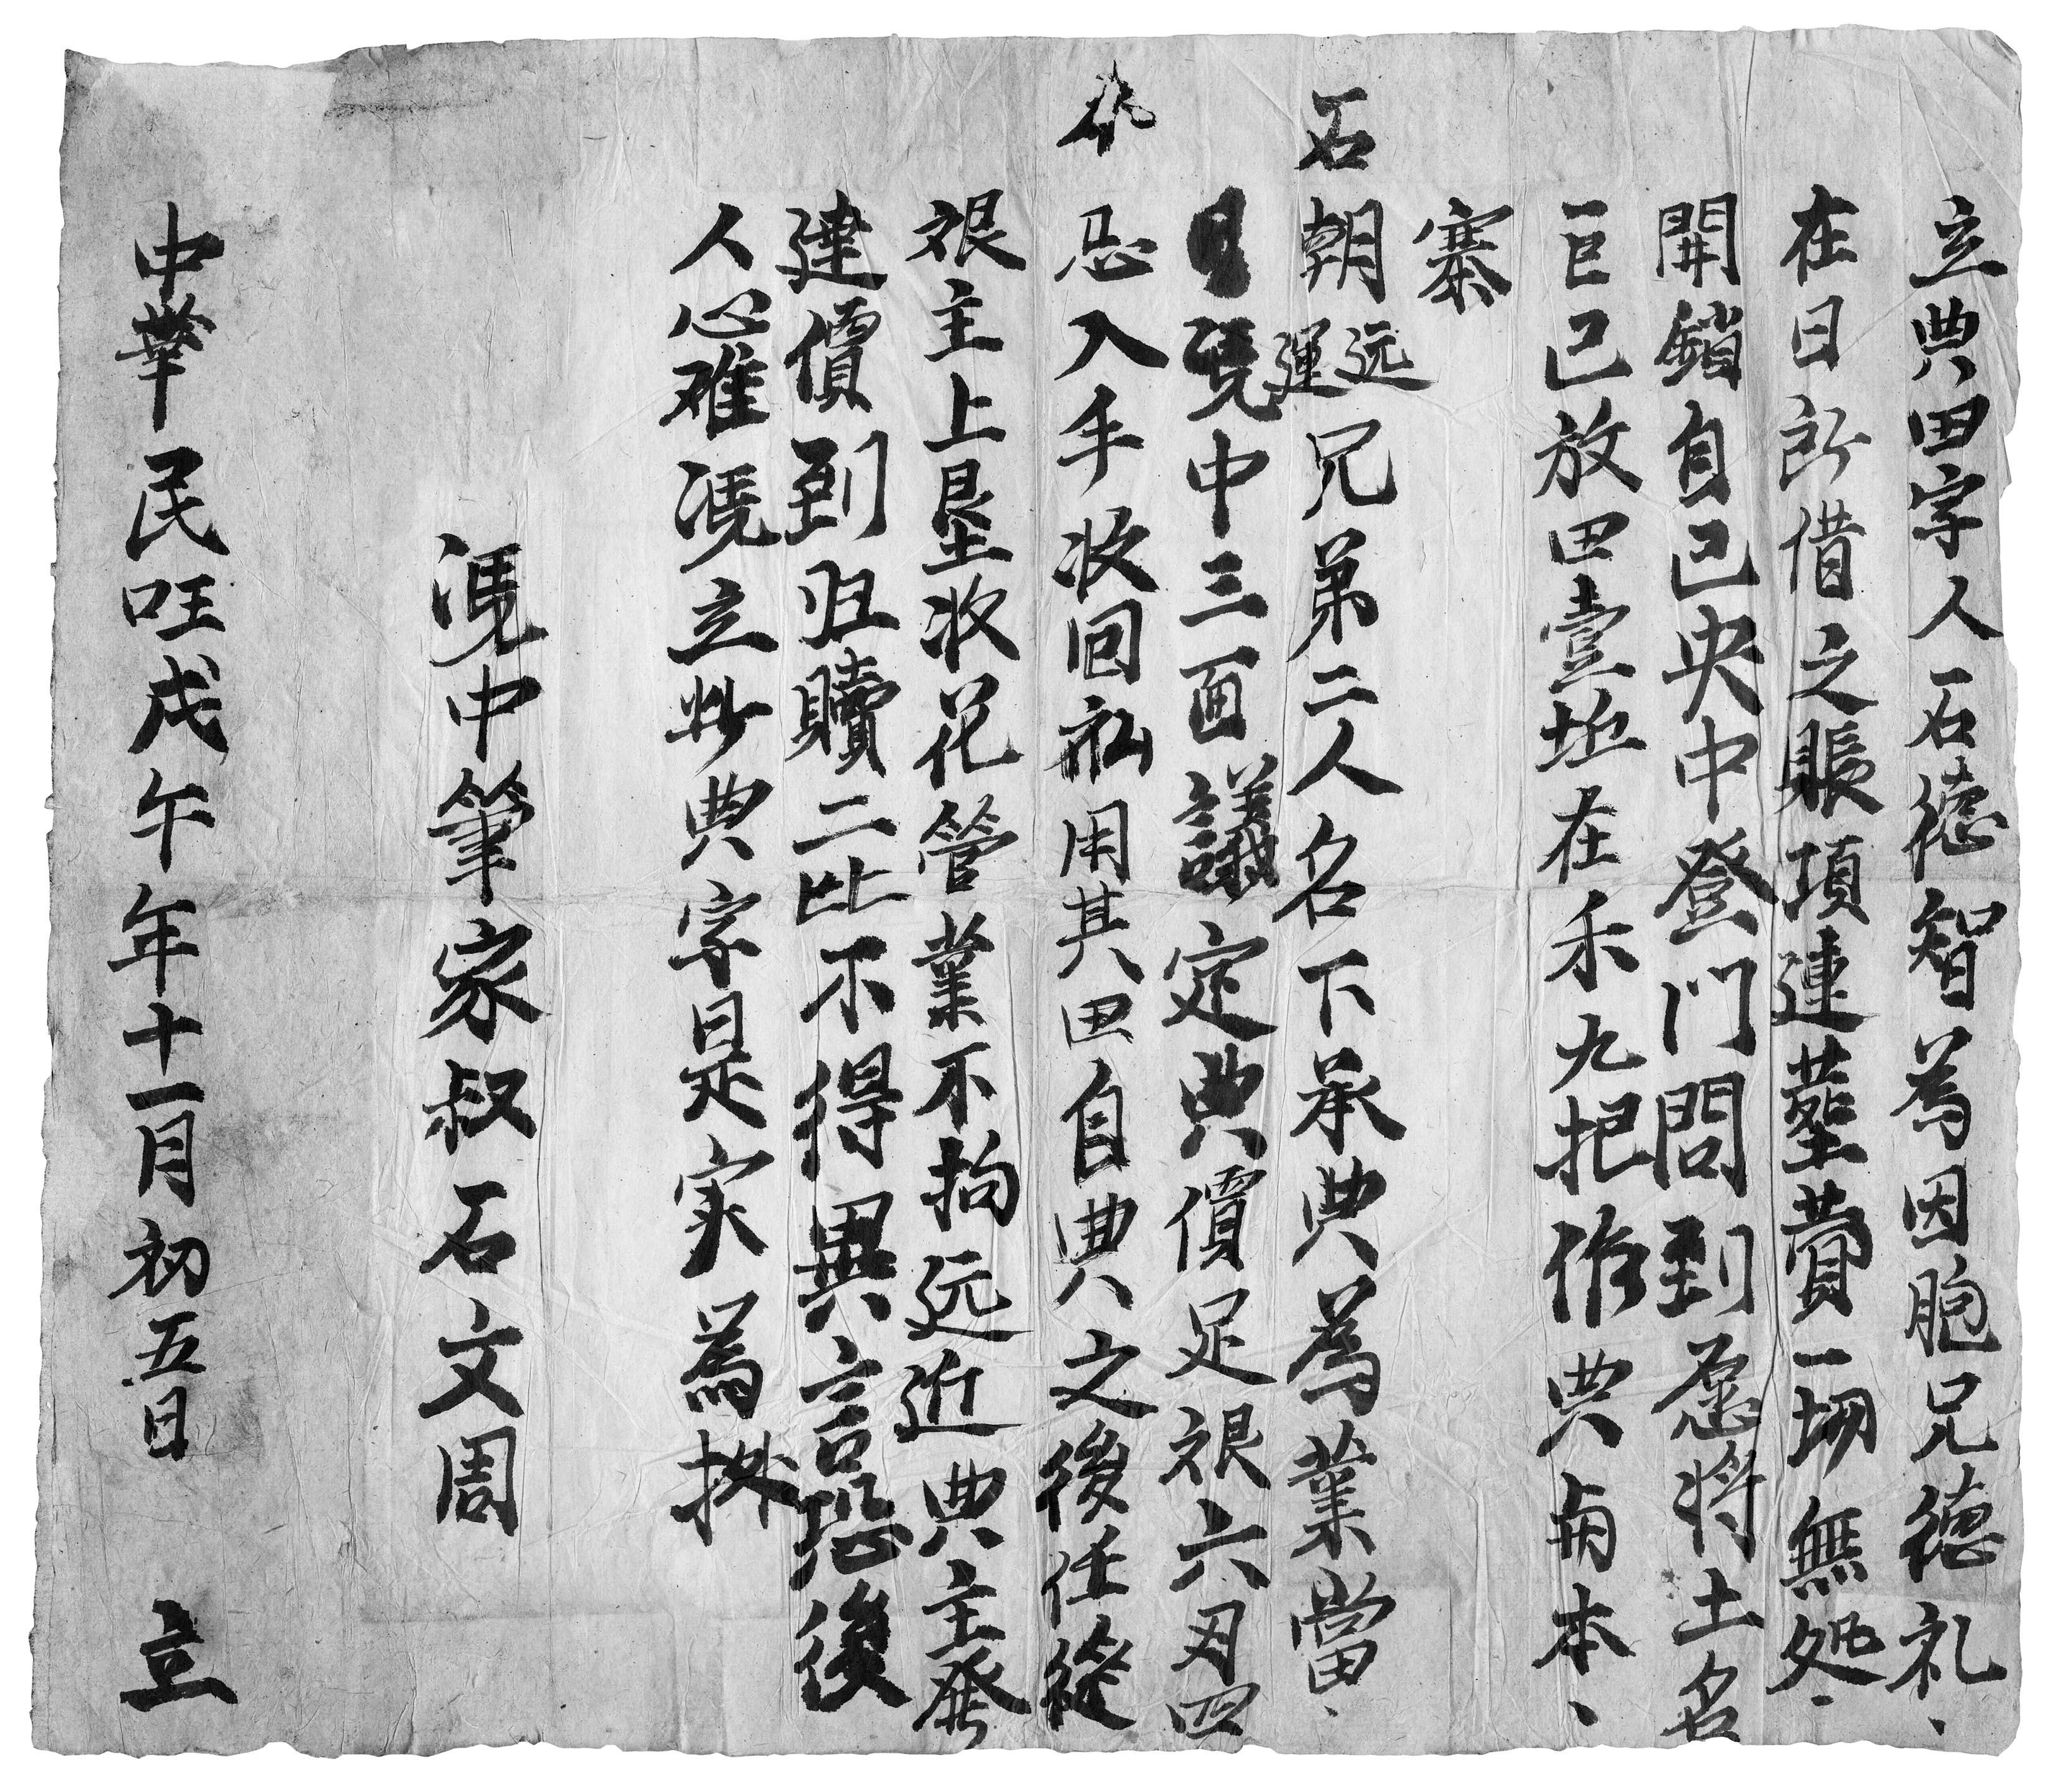 立典田字人石德智為因胞兄德礼、
在日所借之賬項連葬費一切無処、
開銷自己央中登門問到愿将土名
巨己放田壹坵在禾九把作典与本、
寨
石朝远運兄弟二人名下承典為業當、
日凴中三面議定典價足艮六月四
忍入手收回私用其田自典之後任從
艮主上墾收花管業不拘远近典主發
達價到归贖二比不得異言恐後
人心难凴立此典字是实為挶
凴中筆家叔石文周
中華民国戊午年十一月初五日 立